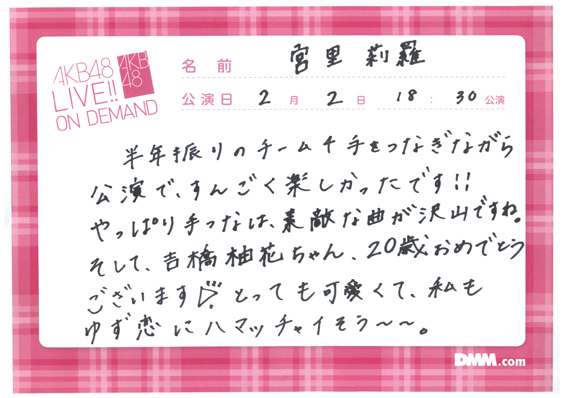 AKB48
LIVE!!
ON DEMAND
AKB
48
名前 宮里莉羅
公演日 2月2日 18:30公演
半年振りのチーム4手をつなぎながら
公演で、すんごく楽しかったです!!
やっぱり手つなは、素敵な曲が沢山ですね。
そして、吉橋柚花ちゃん、20歳おめでとう
ございます♡ とっても可愛くて、私も
ゆず恋にハマッチャイそう〜〜。
DMM.com